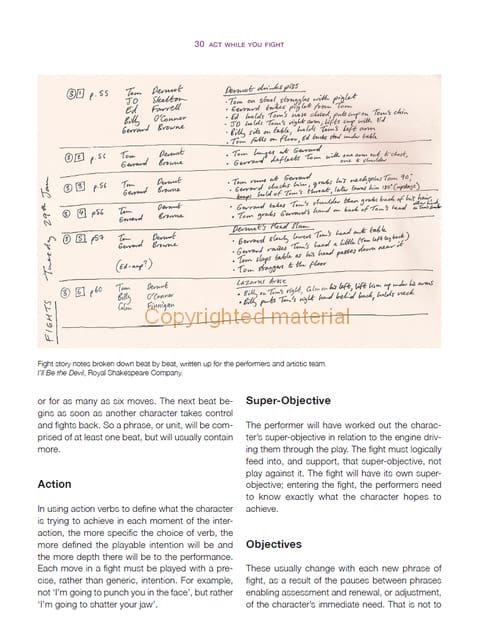 30 ACT WHILE YOU FIGHT
FIGHTS Tuesday 29th Jan
③ 1 p.55 Tom Dermot
JO Skelton
Ed Farrell
Billy O'Connor
Gerrard Browne
Dermot drinks piss
• Tom on stool struggles with piglet
• Gerrard takes piglet from Tom
• Ed holds Tom's nose closed, puts cup on Tom's chin
• JO holds Tom's right arm, lifts cup with Ed
• Billy sits on table, holds Tom's left arm
• Tom falls on floor, Ed under table
③ 2 p.56 Tom Dermot
Gerrard Browne
• Tom lunges at Gerrard
• Gerrard deflects Tom with one arm out to chest, one to shoulder
③ 3 p.56 Tom Dermot
Gerrard Browne
• Tom runs at Gerrard
• Gerrard checks him, grabs his neck, spins Tom 90°,
keeps hold of Tom's throat, later turns him 180° (upstage)
③ 4 p56 Tom Dermot
Gerrard Browne
• Gerrard takes Tom's shoulder then grabs back of his hair
• Tom grabs Gerrard's hand on back of Tom's head
③ 5 p57 Tom Dermot
Gerrard Browne
(Ed - amp?)
Dermot's Head Slam
• Gerrard slowly lowers Tom's head onto table
• Gerrard raises Tom's head a little (Tom left leg back)
• Tom slaps table as his head passes down near it
• Tom staggers to the floor
③ 6 p60 Tom Dermot
Billy O'Connor
Colm Finnigan
Lazarus Arose
• Billy on Tom's right, Colm on his left, lift him up under his arms
• Billy puts Tom's right hand behind back, holds neck
Copyrighted material
Fight story notes broken down beat by beat, written up for the performers and artistic team.
I'll Be the Devil, Royal Shakespeare Company.
or for as many as six moves. The next beat be-
gins as soon as another character takes control
and fights back. So a phrase, or unit, will be com-
prised of at least one beat, but will usually contain
more.
Action
In using action verbs to define what the character
is trying to achieve in each moment of the inter-
action, the more specific the choice of verb, the
more defined the playable intention will be and
the more depth there will be to the performance.
Each move in a fight must be played with a pre-
cise, rather than generic, intention. For example,
not 'I'm going to punch you in the face', but rather
'I'm going to shatter your jaw'.
Super-Objective
The performer will have worked out the charac-
ter's super-objective in relation to the engine driv-
ing them through the play. The fight must logically
feed into, and support, that super-objective, not
play against it. The fight will have its own super-
objective; entering the fight, the performers need
to know exactly what the character hopes to
achieve.
Objectives
These usually change with each new phrase of
fight, as a result of the pauses between phrases
enabling assessment and renewal, or adjustment,
of the character's immediate need. That is not to